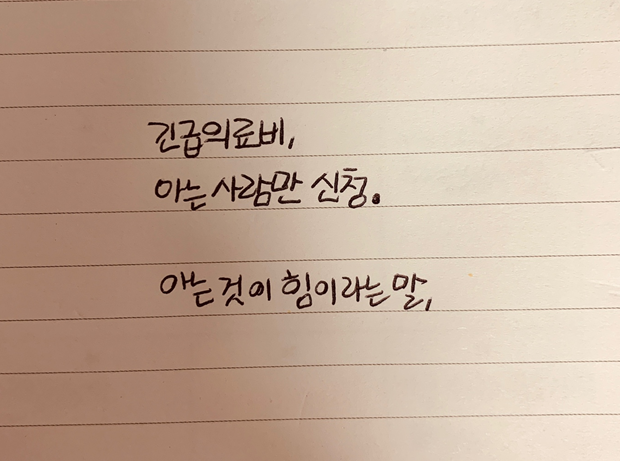 긴급의료비,
아는 사람만 신청.
아는 것이 힘이라는 말,